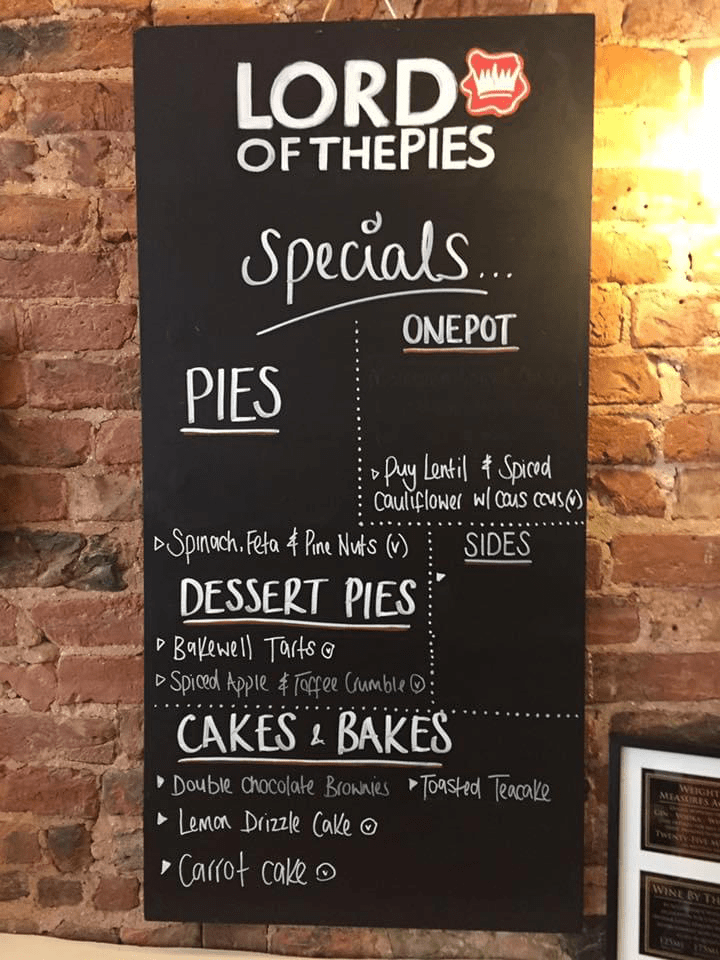 LORD
OF THE PIES
Specials...
ONEPOT
Puy Lentil & Spiced
Cauliflower w/ cous cous (v)
PIES
Spinach, Feta & Pine Nuts (v)
SIDES
DESSERT PIES
Bakewell Tarts (v)
Spiced Apple & Toffee Crumble (v)
CAKES & BAKES
Double Chocolate Brownies
Toasted Teacake
Lemon Drizzle Cake (v)
Carrot cake (v)
WEIGHT
MEASURES A
GIN VODKA
TWENTY-FIVE M
WINE BY TH
125ML